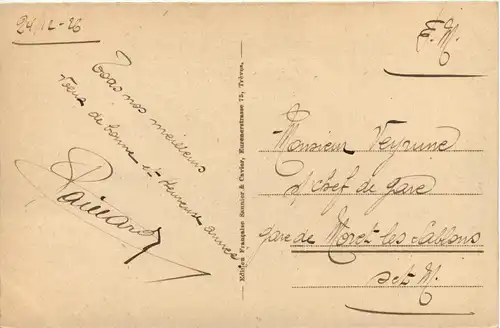 24/12-26
Tous nos meilleurs
voeux de bonne et heureuse année
Edition Française Kennier & Cavier, Eurenerstrasse 75, Trèves.
F. M.
Monsieur Veyrune
s/ Chef de gare
gare de Moret les Sablons
Set M.